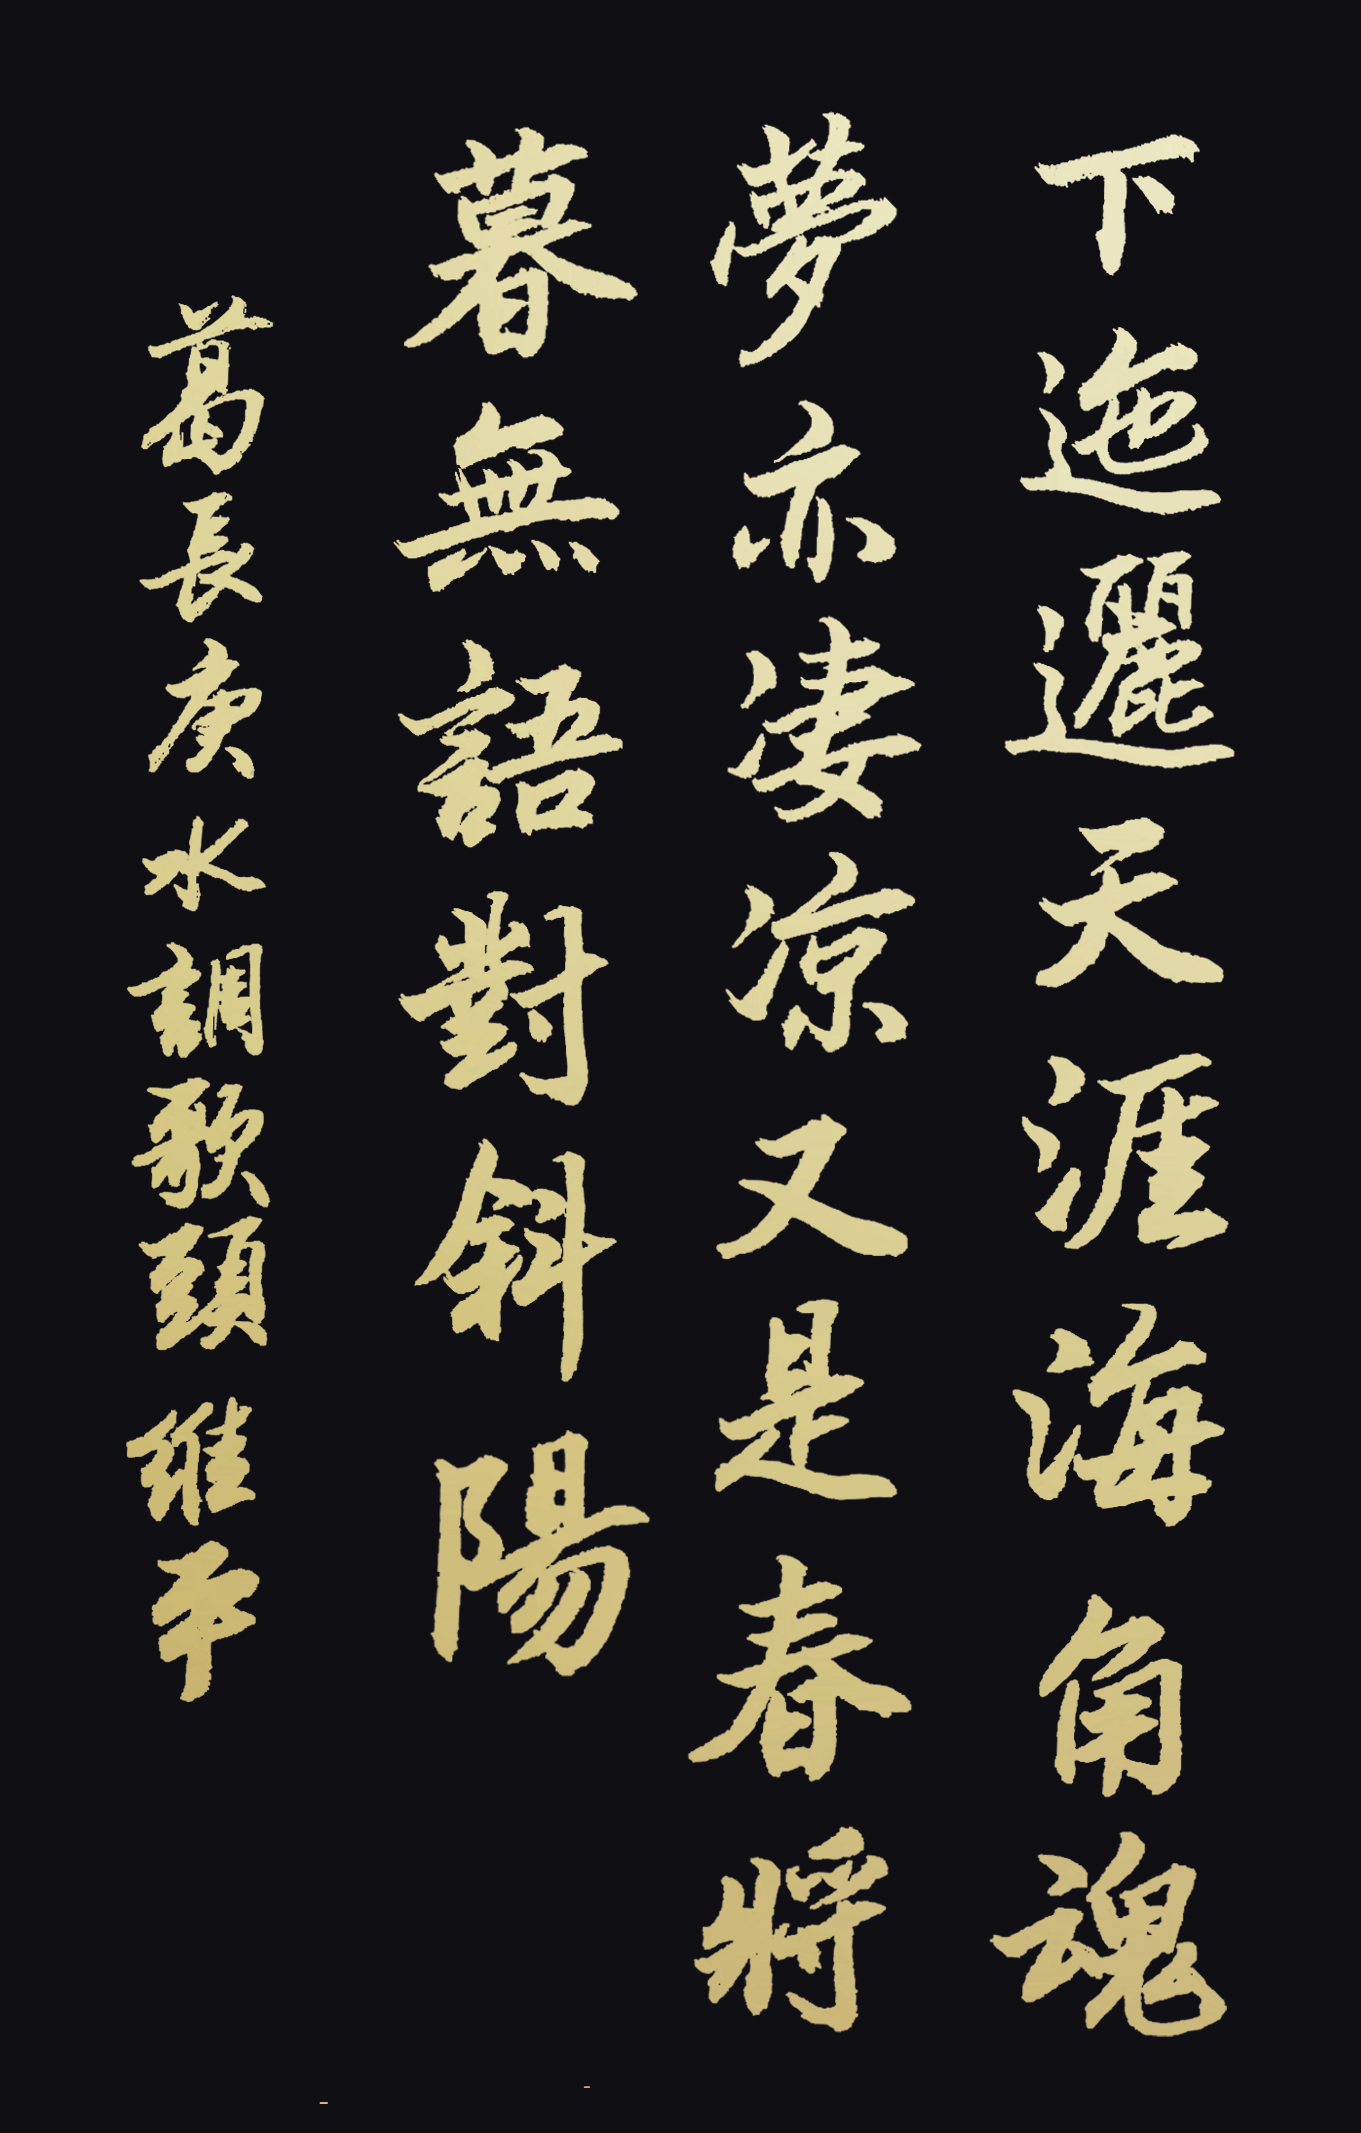 下迤邐天涯海角魂
夢亦淒涼又是春將
暮無語對斜陽
葛長庚水調歌頭維平